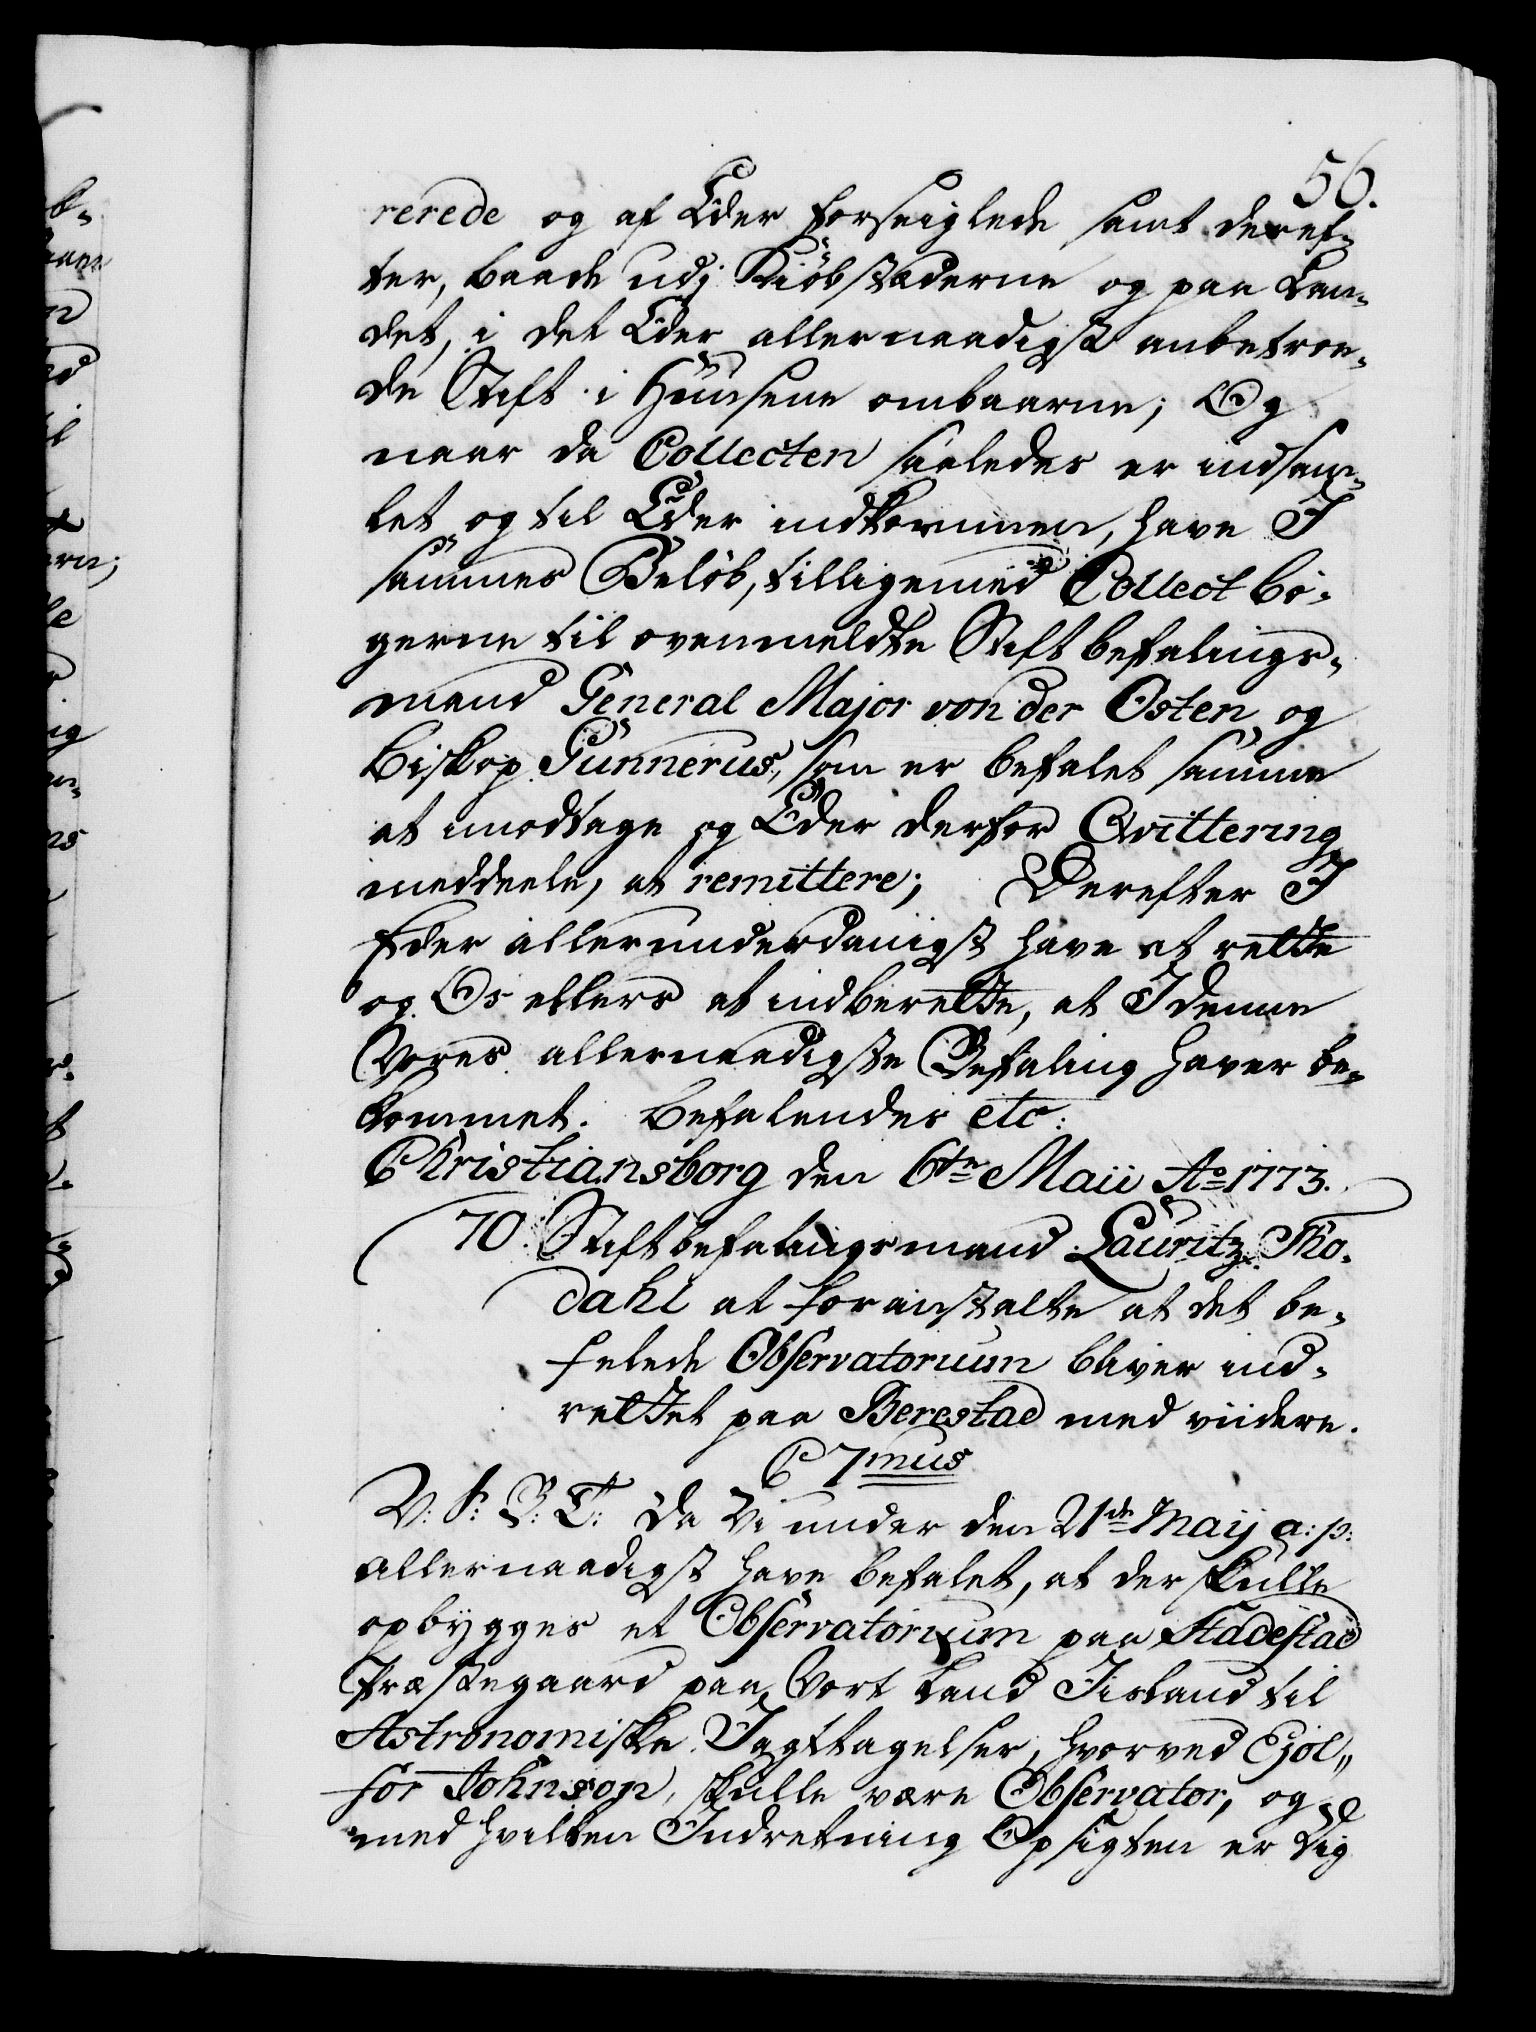 56.
rerede og af Eder forseiglede samt deref-
ter, baade udj Kiöbstæderne og paa Lan-
det, i det Eder allernaadigst anbetroe-
de Stift i Huusene ombaarne; Og
naar da Collecten saaledes er indsam-
let og til Eder indkommen, have I
sammes Belöb, tilligemed Collectbö-
gerne til ovenmeldte Stiftbefalings-
mand General Major von der Osten og
Biskop Gunnerus, som er befalet samme
at imodtage og Eder derfor Qvittering
meddeele, at remittere; Derefter I
Eder allerunderdanigst have at rette
og Os ellers at indberette, at I denne
Vores allernaadigste Befaling haver be-
kommet. Befalendes etc:
Christiansborg den 6te Maii Ao 1773.
70. Stiftbefalingsmand Lauritz Tho-
dahl at foranstalte at det be-
falede Observatorium bliver ind-
rettet paa Berestad med viidere.
C 7mus
V: S: G: T: Da Vi under den 21de Maij a: p:
allernaadigst have befalet, at der skulle
opbygges et Observatorium paa Stadestad
Præstegaard paa Vort Land Iisland til
Astronomiske Iagttagelser, hvorved Ejol-
for Johnson, skulle være Observator, og
med hvilken Indretning Opsigten er Dig